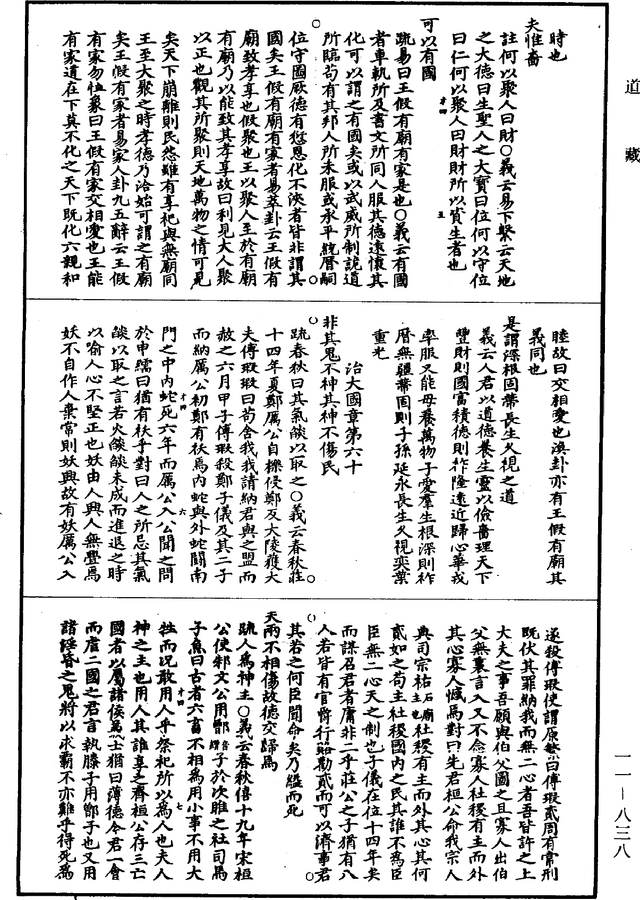 道藏
時也
夫惟嗇
註何以聚人曰財○義云易下繫云天地
之大德曰生聖人之大寳曰位何以守位
曰仁何以聚人曰財財所以資生者也
可以有國
疏易曰王假有廟有家是也○義云有國
者車軌所及書文所同人服其德遠懷其
化可以謂之有國矣或以武威所制詭道
所臨苟有其邦人所未服或承平統曆嗣
位守國厥德有愆恩化不浹者皆非謂其
國矣王假有廟有家者易萃卦云王假有
廟致孝享也假聚也王以聚人至於有廟
有廟乃以能致其孝享故曰利見大人聚
以正也觀其所聚則天地萬物之情可見
矣天下崩離則民怨雖有享祀與無廟同
王至大聚之時孝德乃洽始可謂之有廟
矣王假有家者易家人卦九五辭云王假
有家勿恤象曰王假有家交相愛也王能
有家道在下莫不化之天下既化六親和
睦故曰交相愛也渙卦亦有王假有廟其
義同也
是謂深根固蔕長生久視之道
義云人君以道德養生靈以儉嗇理天下
豐財則國富積德則祚隆遠近歸心華戎
率服又能母養萬物子愛羣生根深則祚
曆無疆蔕固則子孫延永長生久視奕葉
重光
治大國章第六十
非其鬼不神其神不傷民
疏春秋曰其氣燄以取之○義云春秋莊
十四年夏鄭厲公自櫟侵鄭及大陵獲大
夫傅瑕瑕曰苟舍我我請納君與之盟而
赦之六月甲子傅瑕殺鄭子儀及其二子
而納厲公初鄭有祅焉内蛇與外蛇鬭南
門之中内蛇死六年而厲公入公聞之問
於申繻曰猶有祅乎對曰人之所忌其氣
燄以取之言若火燄燄未成而進退之時
以喻人心不堅正也妖由人興人無舋焉
妖不自作人棄常則妖興故有妖厲公入
遂殺傅瑕使謂原繁曰傅瑕貳周有常刑
既伏其罪納我而無二心者吾皆許之上
大夫之事吾願與伯父圖之且寡人出伯
父無裏言入又不念寡人社稷有主而外
其心寡人憾焉對曰先君桓公命我宗人
典司宗祏石廟主也社稷有主而外其心其何
貳如之苟主社稷國内之民其誰不為臣
臣無二心天之制也子儀在位十四年矣
而謀召君者庸非二乎莊公之子猶有八
人若皆有官爵行賂勸貳而可以濟事君
其若之何臣聞命矣乃縊而死
天兩不相傷故德交歸焉
疏人為神主○義云春秋僖十九年宋桓
公使邾文公用鄫子於次睢之社司馬
子魚曰古者六畜不相為用小事不用大
牲而况敢用人乎祭祀所以為人也夫人
神之主也用人其誰享之齊桓公存三亡
國者以屬諸侯焉士猶曰薄德今君一會
而虐二國之君言執滕子用鄫子也又用
諸淫昏之鬼將以求霸不亦難乎得死為
一一—八三八